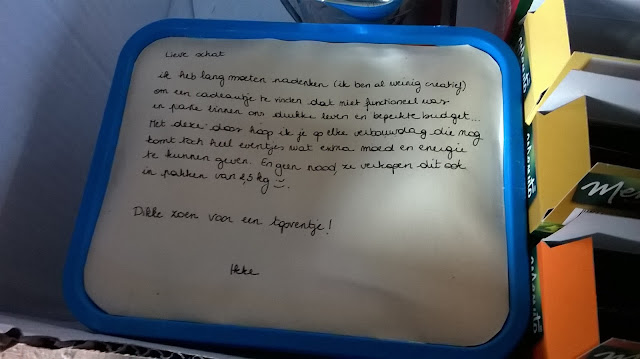 Lieve schat
ik heb lang moeten nadenken (ik ben al weinig creatief)
om een cadeautje te vinden dat niet functioneel was
en paste binnen ons drukke leven en beperkte budget...
Met deze doos hoop ik je op elke verbouwdag die nog
komt toch heel eventjes wat extra moed en energie
te kunnen geven. En geen nood, ze verkopen dit ook
in pakken van 2,5 kg
Dikke zoen voor een topventje!
Mer